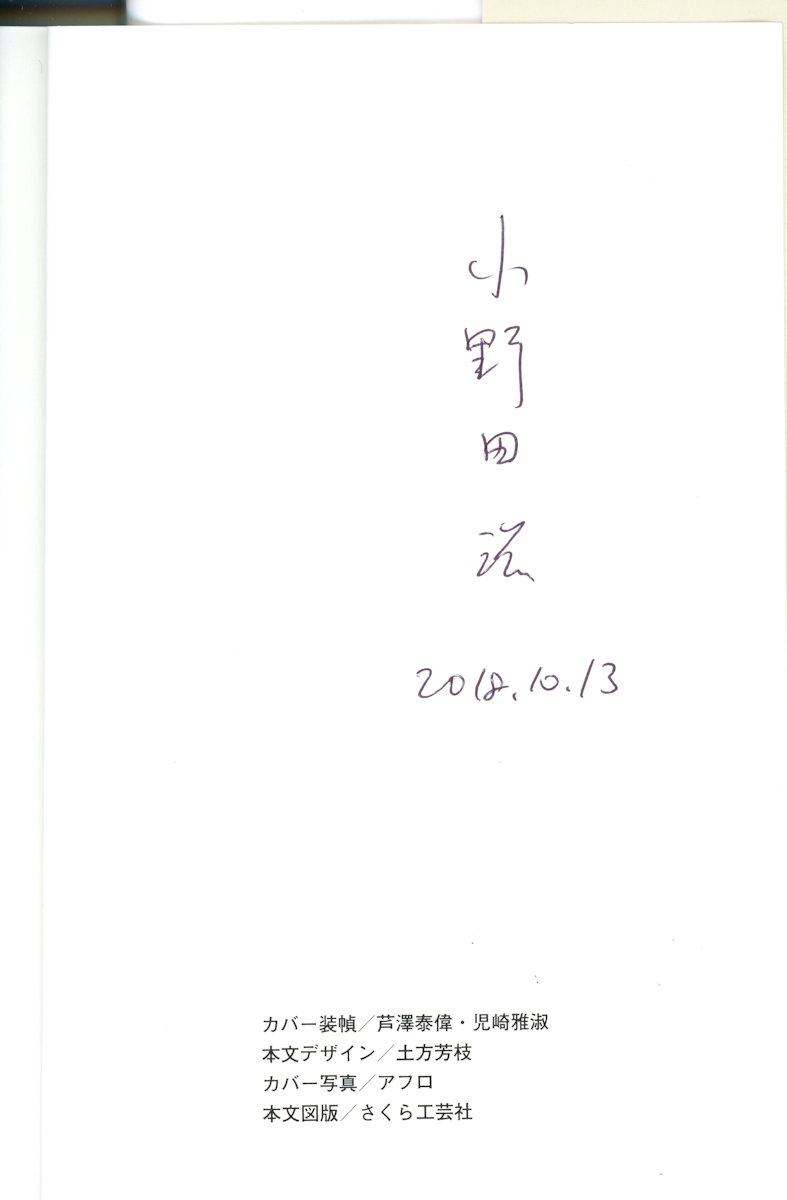 小野田滋
2018.10.13
カバー装幀／芦澤泰偉・児崎雅淑
本文デザイン／土方芳枝
カバー写真／アフロ
本文図版／さくら工芸社